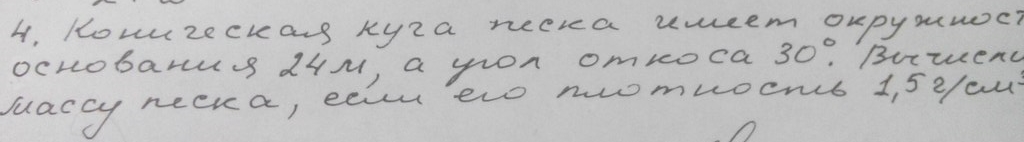 4. Коническая куча песка имеет окружност
основания 24м, а угол откоса 30°. Вычисли
массу песка, если его плотность 1,5 г/см³